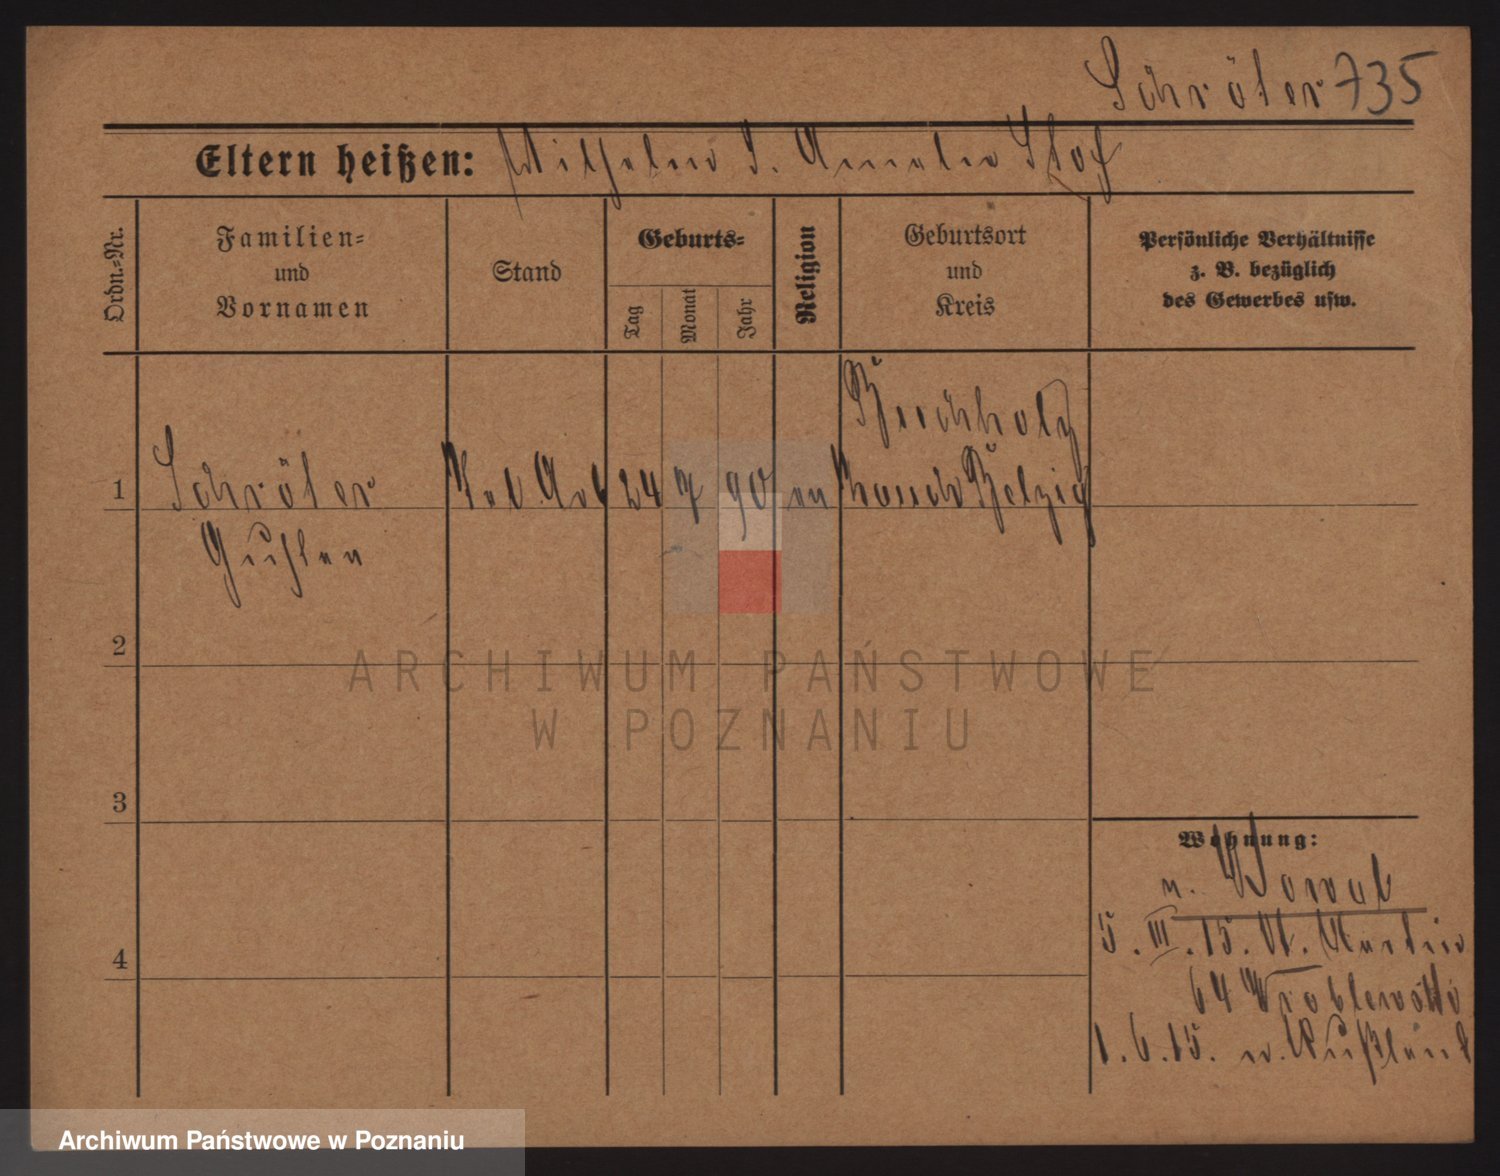 Schröter 735
Eltern heißen: Wilhelm S. Amalie
Ordn.-Nr.
Familien-
und
Vornamen
Stand
Geburts-
Tag
Monat
Jahr
Religion
Geburtsort
und
Kreis
Persönliche Verhältnisse
z. B. bezüglich
des Gewerbes usw.
Buchholz
1 Schröter 24 7 90 Belzig
2
3
4
Wohnung:
5. III. 15. St. Martin
64 Wroblewski
1. 6. 15. n. Rußland
ARCHIWUM PAŃSTWOWE
W POZNANIU
Archiwum Państwowe w Poznaniu